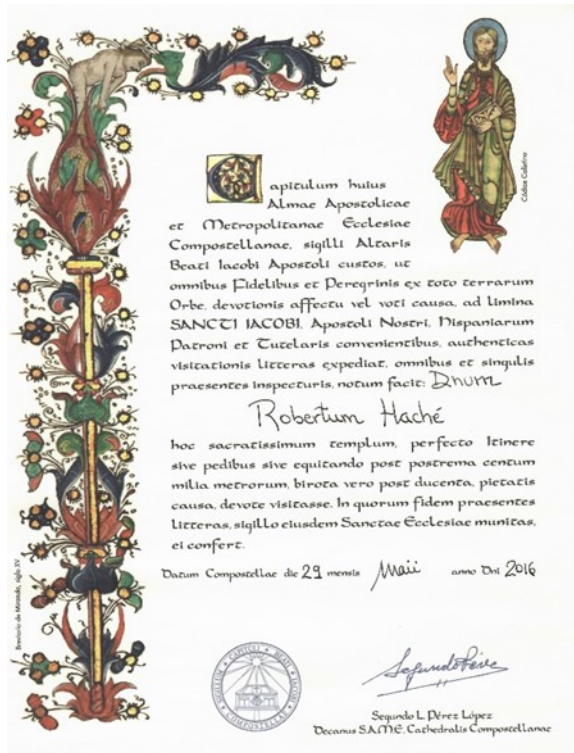 Capitulum huius
Almae Apostolicae
et Metropolitanae Ecclesiae
Compostellanae, sigilli Altaris
Beati Iacobi Apostoli custos, ut
omnibus Fidelibus et Peregrinis ex toto terrarum
Orbe, devotionis affectu vel voti causa, ad limina
SANCTI IACOBI, Apostoli Nostri, Hispaniarum
Patroni et Tutelaris convenientibus, authenticas
visitationis litteras expediat, omnibus et singulis
praesentes inspecturis, notum facit: Dnum
Robertum Haché
hoc sacratissimum templum, perfecto Itinere
sive pedibus sive equitando post postrema centum
milia metrorum, birota vero post ducenta, pietatis
causa, devote visitasse. In quorum fidem praesentes
litteras, sigillo eiusdem Sanctae Ecclesiae munitas,
ei confert.
Datum Compostellae die 29 mensis Maii anno Dni 2016
Segundo L. Pérez López
Decanus S.A.M.E. Cathedralis Compostellanae
Códice Calixtino
Breviario de Miranda, siglo XV
SIGILLUM CAPITULI BEATI IACOBI COMPOSTELLAE